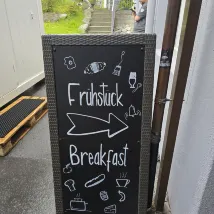 Frühstück
Breakfast